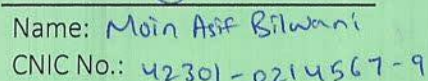 Name: Moin Asif Bilwani
CNIC No.: 42301-0214567-9